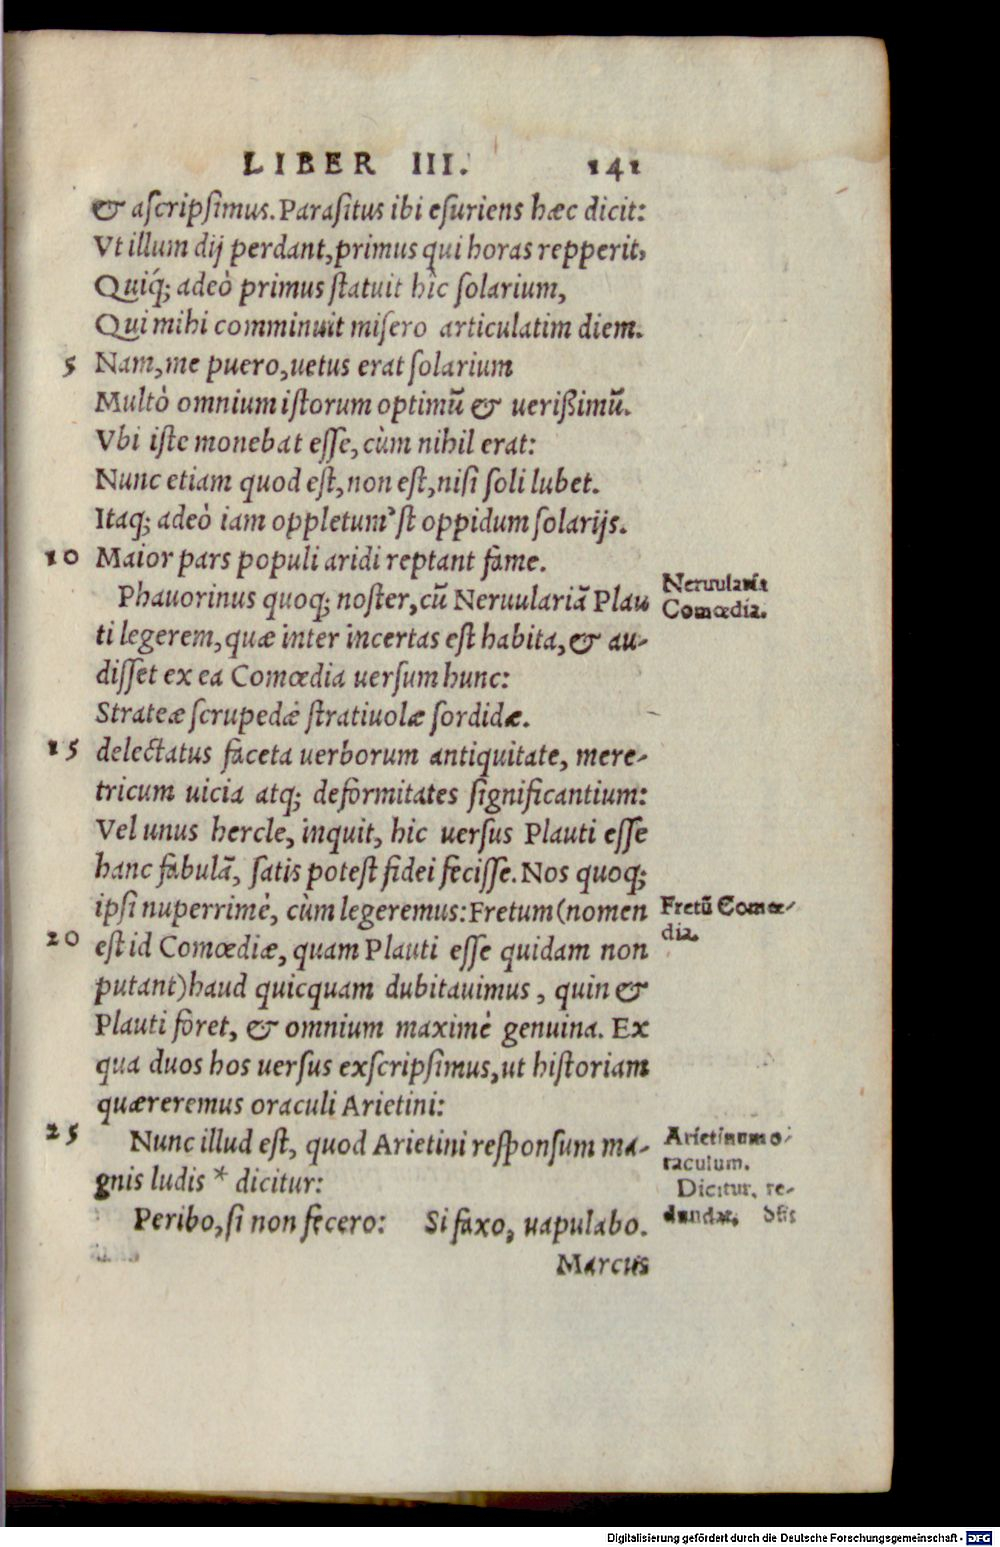 LIBER III. 141
& ascripsimus. Parasitus ibi esuriens hæc dicit:
Vt illum dij perdant, primus qui horas repperit,
Quiq́; adeò primus statuit hîc solarium,
Qui mihi comminuit misero articulatim diem.
5 Nam, me puero, uetus erat solarium
Multò omnium istorum optimũ & uerißimũ.
Vbi iste monebat esse, cùm nihil erat:
Nunc etiam quod est, non est, nisi soli lubet.
Itaq; adeò iam oppletum'st oppidum solarijs.
10 Maior pars populi aridi reptant fame.
Phauorinus quoq; noster, cũ Neruulariã Plau
Neruularia
Comœdia.
ti legerem, quæ inter incertas est habita, & au-
disset ex ea Comœdia uersum hunc:
Strateæ scrupedæ stratiuolæ sordidæ.
15 delectatus faceta uerborum antiquitate, mere-
tricum uicia atq; deformitates significantium:
Vel unus hercle, inquit, hic uersus Plauti esse
hanc fabulã, satis potest fidei fecisse. Nos quoq;
ipsi nuperrimè, cùm legeremus: Fretum (nomen
Fretũ Comœ-
dia.
20 est id Comœdiæ, quam Plauti esse quidam non
putant) haud quicquam dubitauimus, quin &
Plauti foret, & omnium maximè genuina. Ex
qua duos hos uersus exscripsimus, ut historiam
quæreremus oraculi Arietini:
25 Nunc illud est, quod Arietini responsum ma-
Arietinum o-
raculum.
gnis ludis * dicitur:
Dicitur, re-
dundat.
Peribo, si non fecero: Si faxo, uapulabo.
Marcus
Digitalisierung gefördert durch die Deutsche Forschungsgemeinschaft - DFG